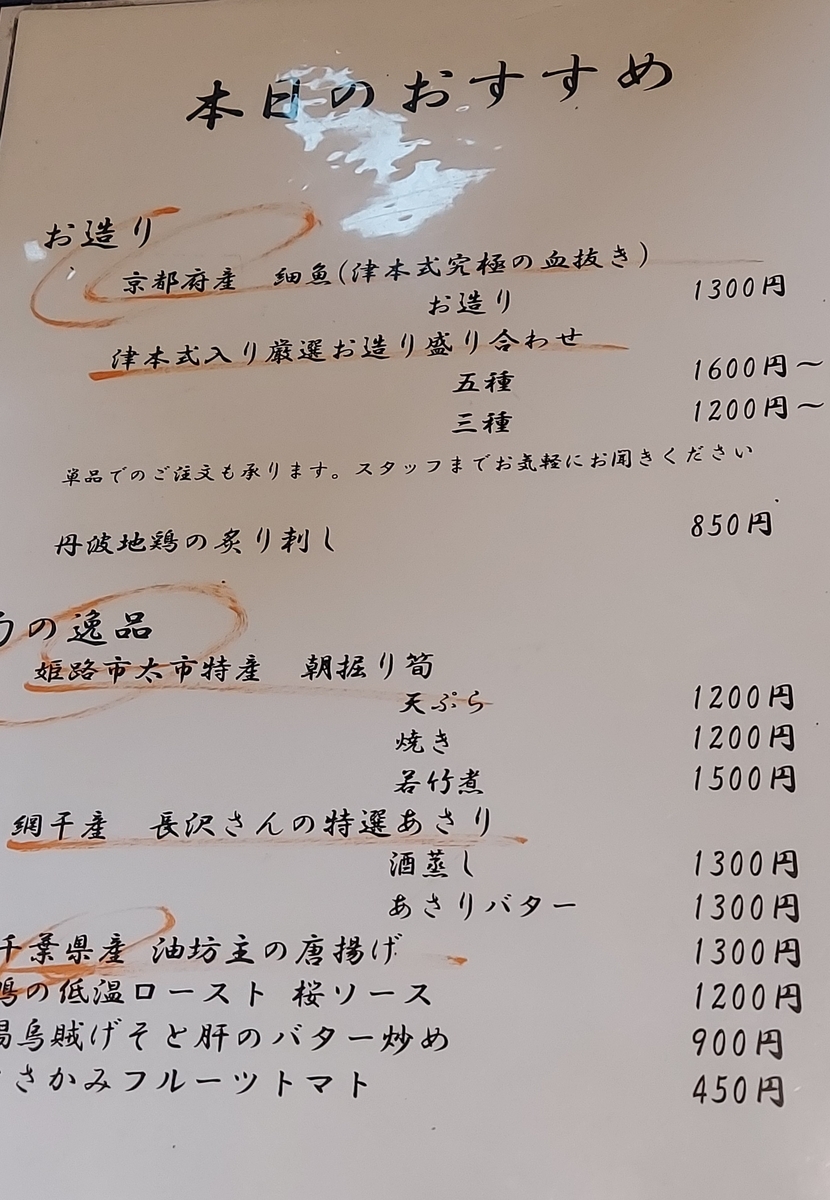 本日のおすすめ
お造り
京都府産 細魚(津本式究極の血抜き)
お造り 1300円
津本式入り厳選お造り盛り合わせ
五種 1600円～
三種 1200円～
単品でのご注文も承ります。スタッフまでお気軽にお聞きください
丹波地鶏の炙り刺し 850円
の逸品
姫路市太市特産 朝掘り筍
天ぷら 1200円
焼き 1200円
若竹煮 1500円
網干産 長沢さんの特選あさり
酒蒸し 1300円
あさりバター 1300円
千葉県産 油坊主の唐揚げ 1300円
の低温ロースト 桜ソース 1200円
烏賊げそと肝のバター炒め 900円
さかみフルーツトマト 450円